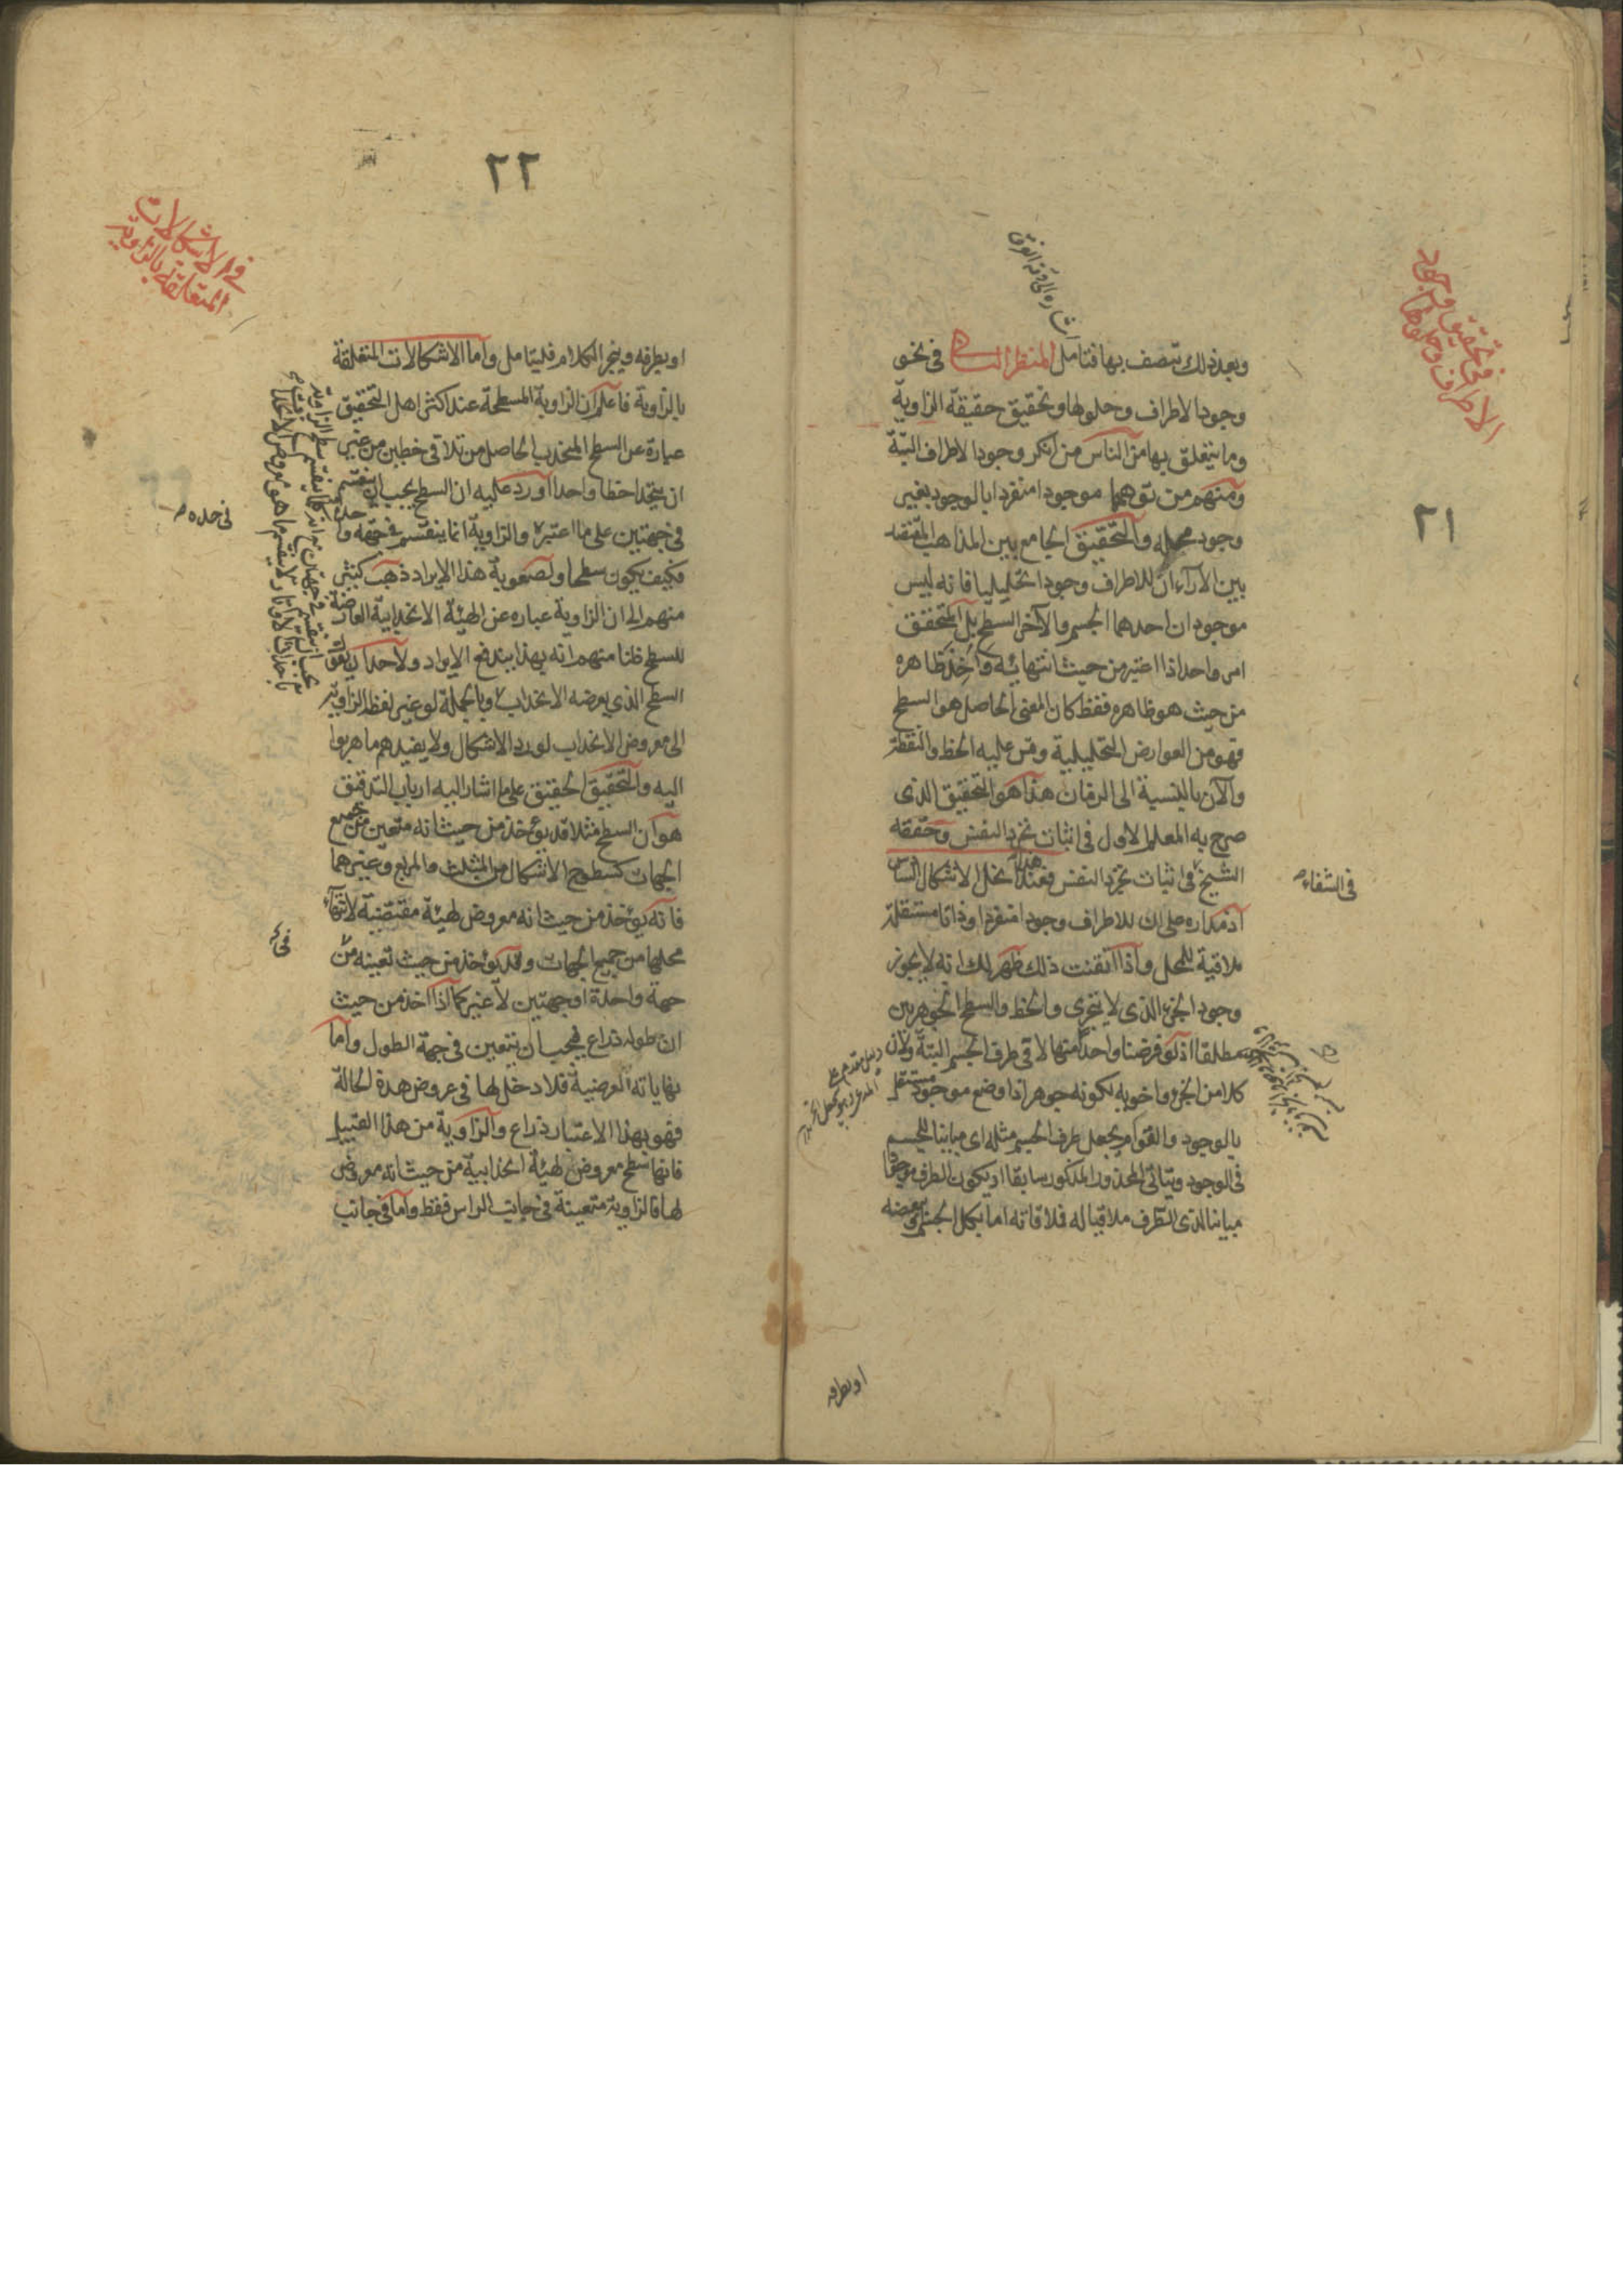 ٢١
في تحقيق وجود
الاطراف وحلولها
وبعد ذلك تتصف بها فتامل المنظر السا في نحو
وجود الاطراف وحلولها وتحقيق حقيقة الزاوية
وما يتعلق بها من الناس من انكر وجود الاطراف البتة
ومنهم من توهمها موجودا منفردا بالوجود بغير
وجود محله والتحقيق الجامع بين المذاهب
بين الآراء ان للاطراف وجودا تحليليا فانه ليس
موجودان احدهما الجسم والآخر السطح بل المتحقق
امر واحد اذا اعتبر من حيث انتهائه واخذ ظاهره
من حيث هو ظاهره فقط كان المعنى الحاصل هو السطح
فهو من العوارض التحليلية وقس عليه الخط والنقطة
والآن بالنسبة الى الزمان هذا هو التحقيق الذى
صرح به المعلم الاول في اثبات تجرد النفس وحققه
الشيخ في اثبات تجرد النفس فعند هذا انحل الاشكال
في الشفاء
اذ مداره على ان للاطراف وجودا منفردا وذاتا مستقلة
ملاقية للمحل واذا اتقنت ذلك ظهر لك انه لا يجوز
وجود الجزء الذى لا يتجزى والخط والسطح الجوهريين
مطلقا اذ لو فرضنا واحدا منها لاقى طرف الجسم البتة ولان
كلا من الجزء واخويه لكونه جوهرا ذا وضع موجود مستقل
بالوجود والقوام يجعل طرف الجسم مثله اى مباينا للجسم
في الوجود ويتاتى المحذور المذكور سابقا اذ يكون الطرف موجودا
مباينا لذى الطرف ملاقيا له فلاقاته اما بكل الجسم او ببعضه
او بطرفه
٢٢
في الاشكالات
المتعلقة بالزاوية
او بطرفه وينجر الكلام فليتامل واما الاشكالات المتعلقة
بالزاوية فاعلم ان الزاوية المسطحة عند اكثر اهل التحقيق
عبارة عن السطح المنحدب الحاصل من تلاقى خطين من غير
ان يتحدا خطا واحدا اورد عليه ان السطح يجب ان ينقسم
في حده
في جهتين على ما اعتبر والزاوية انما ينقسم في جهة واحدة
فكيف يكون سطحا ولصعوبة هذا الايراد ذهب كثير
منهم الى ان الزاوية عبارة عن الهيئة الانحدابية العارضة
للسطح ظنا منهم انه بهذا يندفع الايراد ولاحد ان يقول
السطح الذي يعرضه الانحداب وبالجملة لو غير لفظ الزاوية
الى معروض الانحداب لورد الاشكال ولا يفيدهم ما هربوا
اليه والتحقيق الحقيق على ما اشار اليه ارباب التدقيق
هو ان السطح مثلا قد يؤخذ من حيث انه متعين من جميع
الجهات كسطوح الاشكال من المثلث والمربع وغيرهما
فانه يؤخذ من حيث انه معروض لهيئة مقتضية لانتهاء
محلها من جميع الجهات وقد يؤخذ من حيث تعينه من
جهة واحدة او جهتين لا غير كما اذا اخذ من حيث
ان طوله ذراع فيجب ان يتعين في جهة الطول واما
نهاياته العرضية فلا دخل لها في عروض هذه الحالة
فهو بهذا الاعتبار ذراع والزاوية من هذا القبيل
فانها سطح معروض لهيئة انحدابية من حيث انه معروض
لها فالزاوية متعينة في جانب الراس فقط واما في جانب